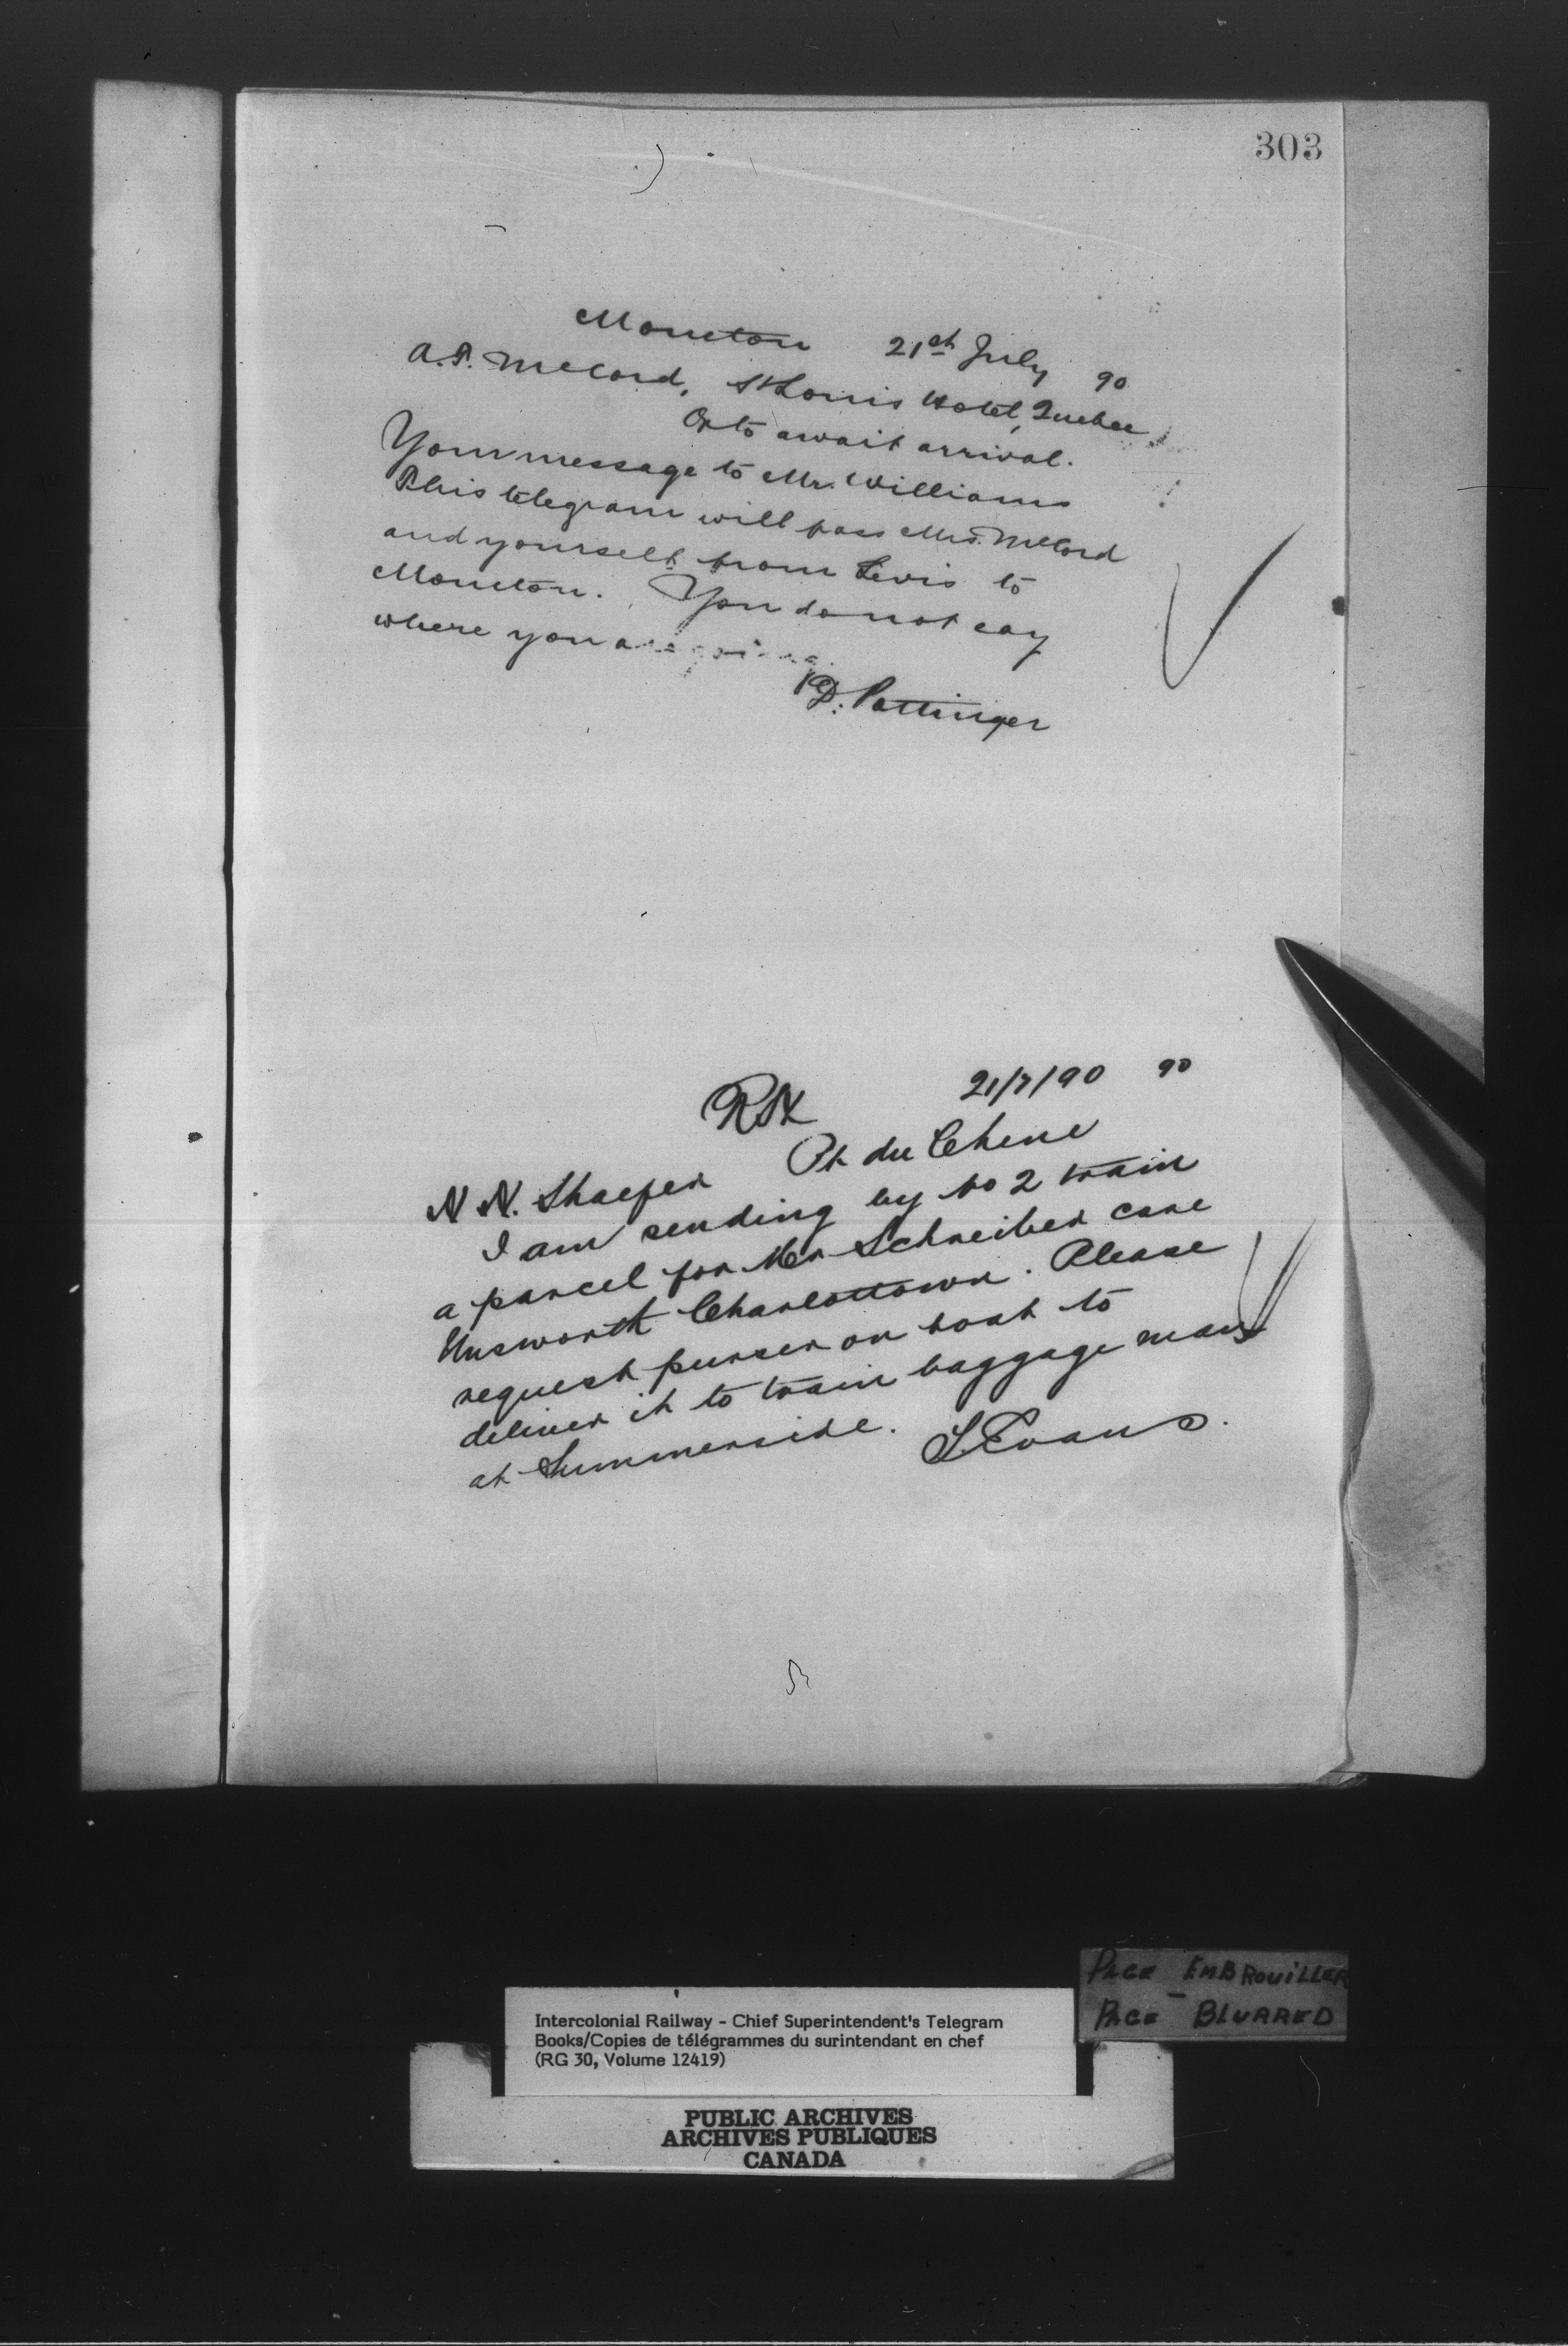 303
Moncton 21st July 90
A.P. McCord, St Louis Hotel, Quebec
Or to await arrival.
Your message to Mr. Williams
This telegram will pass Mrs. McCord
and yourself from Levis to
Moncton. You do not say
where you are going.
D. Pottinger
21/7/90 90
Pt du Chene
N. N. Shaefer
I am sending by no 2 train
a parcel for Mr Schreiber care
Unsworth Charlottown. Please
request purser on boat to
deliver it to train baggage man
at Summerside.
T. Evans.
PAGE EMBROUILLER
PAGE - BLURRED
Intercolonial Railway - Chief Superintendent's Telegram
Books/Copies de télégrammes du surintendant en chef
(RG 30, Volume 12419)
PUBLIC ARCHIVES
ARCHIVES PUBLIQUES
CANADA